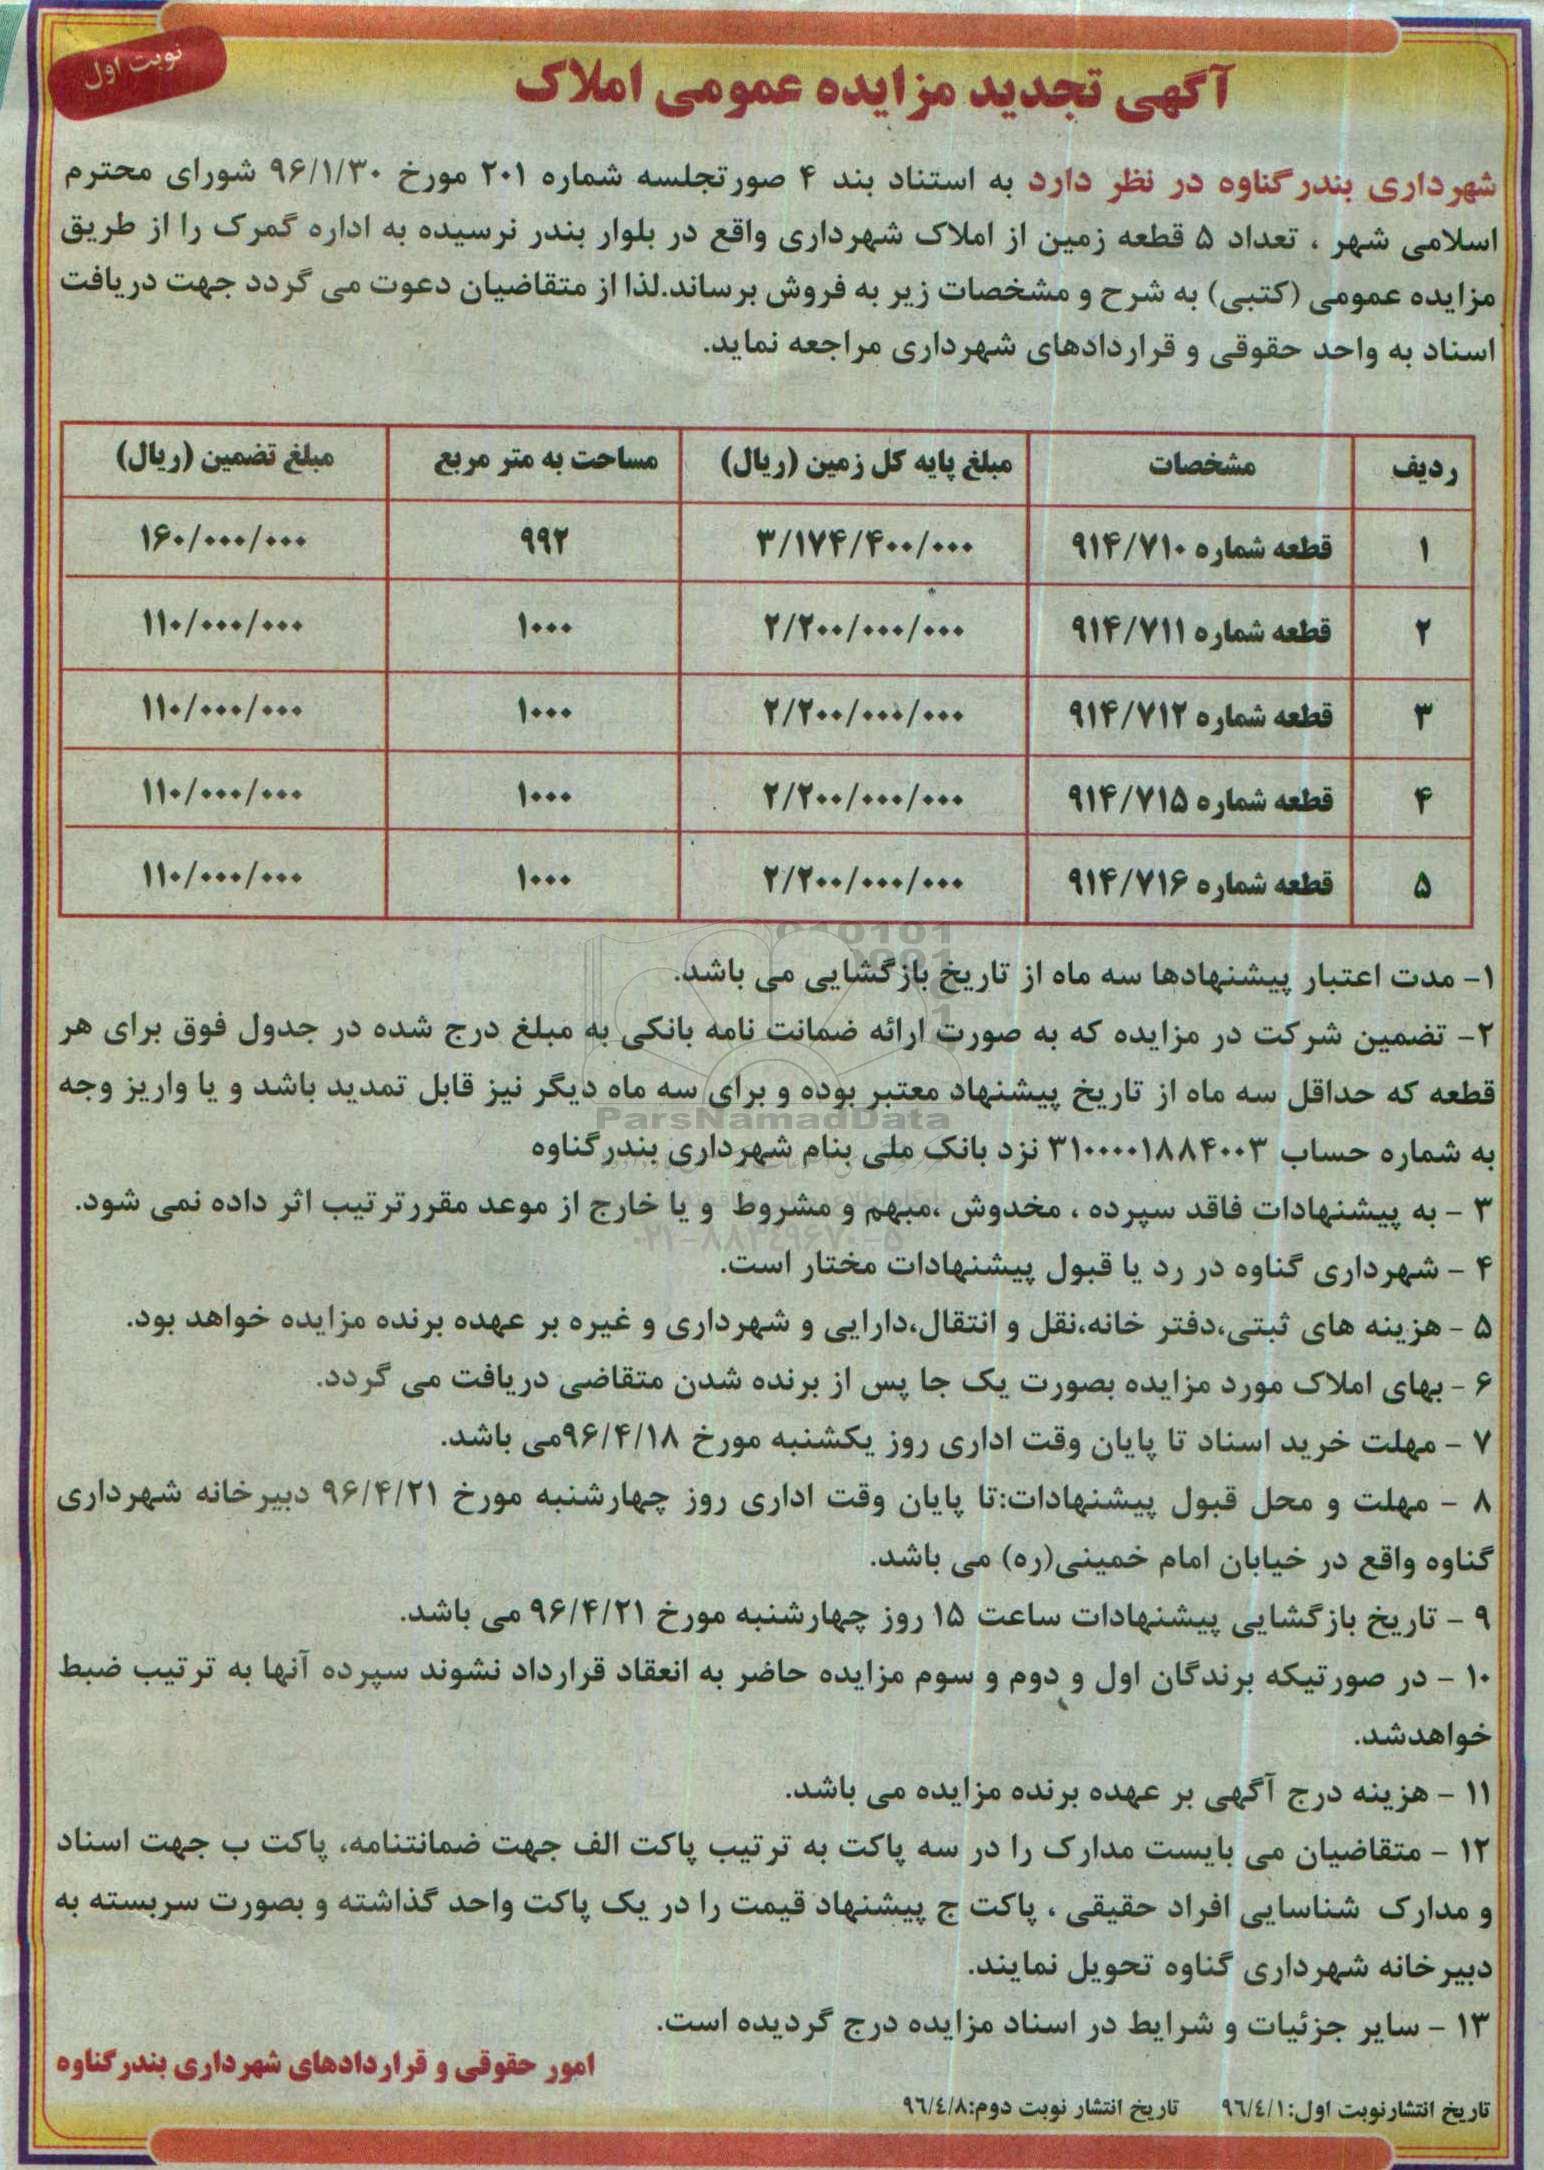 نوبت اول
آگهی تجدید مزایده عمومی املاک
شهرداری بندرگناوه در نظر دارد به استناد بند ۴ صورتجلسه شماره ۲۰۱ مورخ ۹۶/۱/۳۰ شورای محترم
اسلامی شهر ، تعداد ۵ قطعه زمین از املاک شهرداری واقع در بلوار بندر نرسیده به اداره گمرک را از طریق
مزایده عمومی (کتبی) به شرح و مشخصات زیر به فروش برساند.لذا از متقاضیان دعوت می گردد جهت دریافت
اسناد به واحد حقوقی و قراردادهای شهرداری مراجعه نماید.
ردیف مشخصات مبلغ پایه کل زمین (ریال) مساحت به متر مربع مبلغ تضمین (ریال)
۱ قطعه شماره ۹۱۴/۷۱۰ ۳/۱۷۴/۴۰۰/۰۰۰ ۹۹۲ ۱۶۰/۰۰۰/۰۰۰
۲ قطعه شماره ۹۱۴/۷۱۱ ۲/۲۰۰/۰۰۰/۰۰۰ ۱۰۰۰ ۱۱۰/۰۰۰/۰۰۰
۳ قطعه شماره ۹۱۴/۷۱۲ ۲/۲۰۰/۰۰۰/۰۰۰ ۱۰۰۰ ۱۱۰/۰۰۰/۰۰۰
۴ قطعه شماره ۹۱۴/۷۱۵ ۲/۲۰۰/۰۰۰/۰۰۰ ۱۰۰۰ ۱۱۰/۰۰۰/۰۰۰
۵ قطعه شماره ۹۱۴/۷۱۶ ۲/۲۰۰/۰۰۰/۰۰۰ ۱۰۰۰ ۱۱۰/۰۰۰/۰۰۰
۱- مدت اعتبار پیشنهادها سه ماه از تاریخ بازگشایی می باشد.
۲- تضمین شرکت در مزایده که به صورت ارائه ضمانت نامه بانکی به مبلغ درج شده در جدول فوق برای هر
قطعه که حداقل سه ماه از تاریخ پیشنهاد معتبر بوده و برای سه ماه دیگر نیز قابل تمدید باشد و یا واریز وجه
ParsNamadData
به شماره حساب ۳۱۰۰۰۰۱۸۸۴۰۰۳ نزد بانک ملی بنام شهرداری بندرگناوه
۳ - به پیشنهادات فاقد سپرده ، مخدوش ،مبهم و مشروط و یا خارج از موعد مقررترتیب اثر داده نمی شود.
۰۲۱-۸۸۳۴۹۶۷۰-۵
۴ - شهرداری گناوه در رد یا قبول پیشنهادات مختار است.
۵ - هزینه های ثبتی،دفتر خانه،نقل و انتقال،دارایی و شهرداری و غیره بر عهده برنده مزایده خواهد بود.
۶ - بهای املاک مورد مزایده بصورت یک جا پس از برنده شدن متقاضی دریافت می گردد.
۷ - مهلت خرید اسناد تا پایان وقت اداری روز یکشنبه مورخ ۹۶/۴/۱۸می باشد.
۸ - مهلت و محل قبول پیشنهادات:تا پایان وقت اداری روز چهارشنبه مورخ ۹۶/۴/۲۱ دبیرخانه شهرداری
گناوه واقع در خیابان امام خمینی(ره) می باشد.
۹ - تاریخ بازگشایی پیشنهادات ساعت ۱۵ روز چهارشنبه مورخ ۹۶/۴/۲۱ می باشد.
۱۰ - در صورتیکه برندگان اول و دوم و سوم مزایده حاضر به انعقاد قرارداد نشوند سپرده آنها به ترتیب ضبط
خواهدشد.
۱۱ - هزینه درج آگهی بر عهده برنده مزایده می باشد.
۱۲ - متقاضیان می بایست مدارک را در سه پاکت به ترتیب پاکت الف جهت ضمانتنامه، پاکت ب جهت اسناد
و مدارک شناسایی افراد حقیقی ، پاکت ج پیشنهاد قیمت را در یک پاکت واحد گذاشته و بصورت سربسته به
دبیرخانه شهرداری گناوه تحویل نمایند.
۱۳ - سایر جزئیات و شرایط در اسناد مزایده درج گردیده است.
امور حقوقی و قراردادهای شهرداری بندرگناوه
تاریخ انتشارنوبت اول:۹٦/٤/۱ تاریخ انتشار نوبت دوم:۹٦/٤/۸